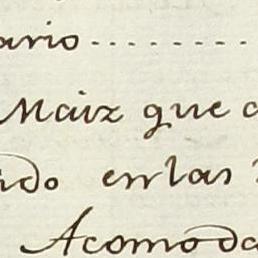 ario..........
Maiz que
ndo enlas
Acomoda